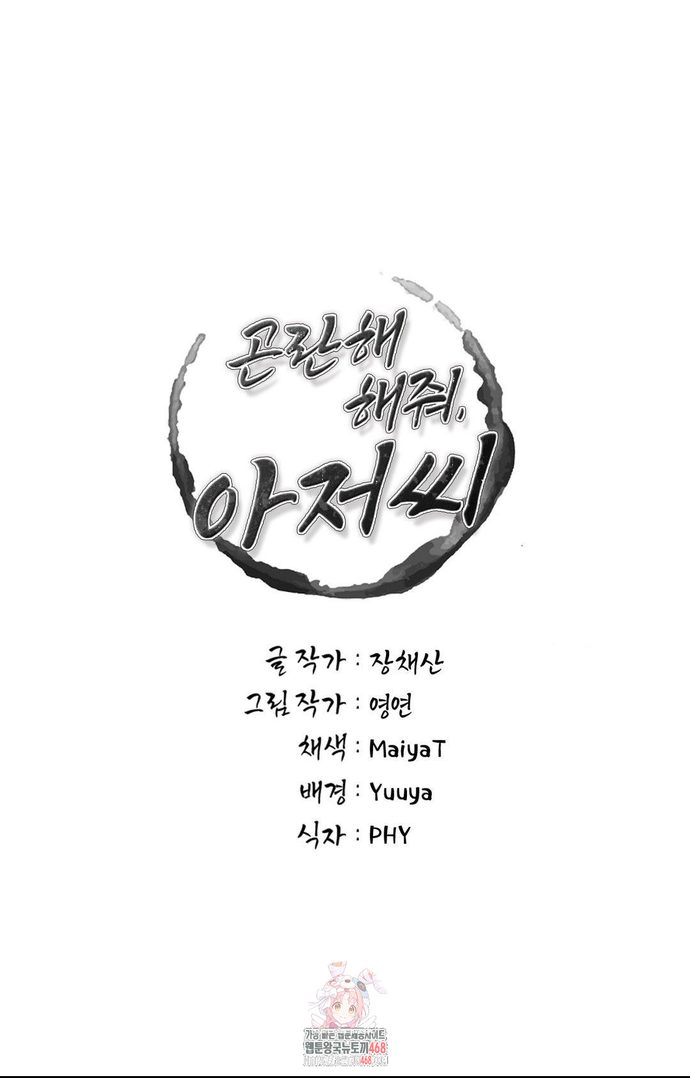 곤란해
해줘,
아저씨
글 작가 : 장채산
그림 작가 : 영연
채색 : MaiyaT
배경 : Yuuya
식자 : PHY
가장 빠른 웹툰제공사이트
웹툰왕국뉴토끼468